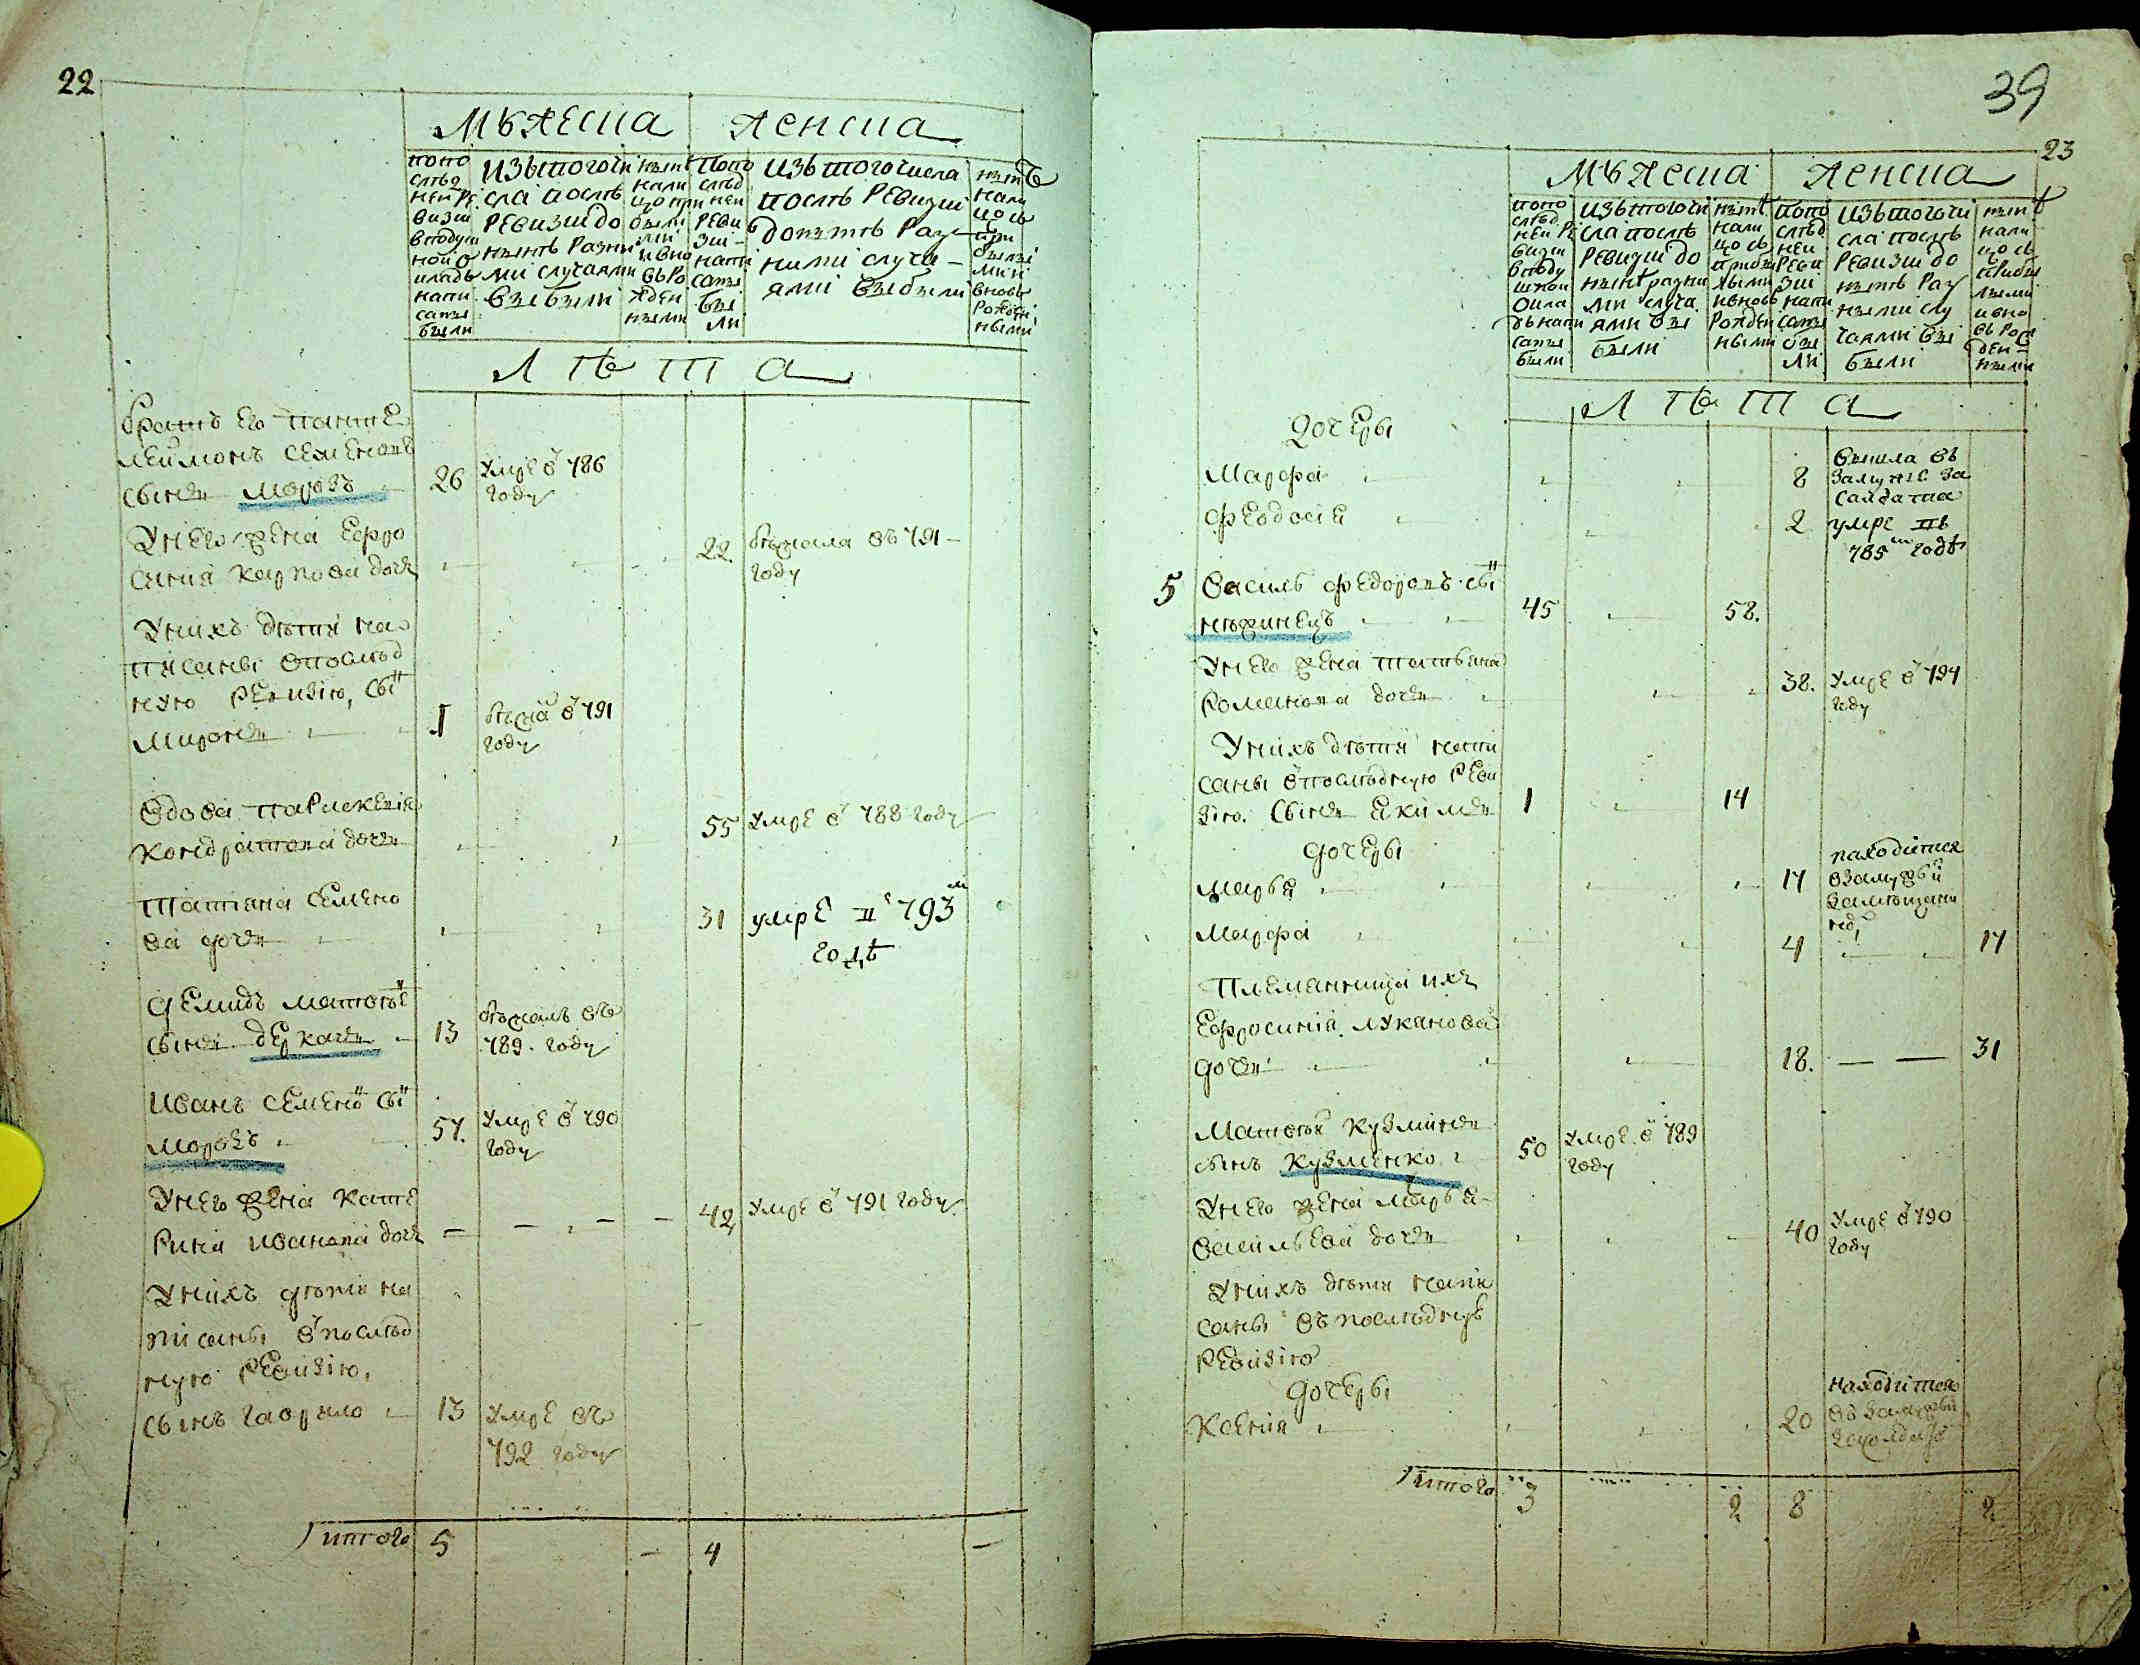 22
Мужеска
женска
по по
слѣд
ней ре
визи
в подуш
ной о
кладъ
напи
саны
были
изъ того чи
сла послѣ
ревизии до
нынѣ разны
ми случаями
выбыли
по по
слѣд
ней
реви
зии
напи
саны
бы
ли
изъ того числа
послѣ ревизии
до нынѣ раз
ными случа
ями выбыли
лѣта
братъ его панте
леймонъ семеновъ
сынъ морозъ
26
умре в 786
году
У него жена Ефро
синия карпова дочь
22
бѣжала въ 791
году
У нихъ дѣти на
писаны в послѣд
нюю ревизию, сын
миронъ
1
791
году
вдова параскевия
кондратова дочь
55
умре в 788 году
Татіана семено
ва дочь
31
умре в 793 м
годѣ
демидъ матвѣев
сынъ деркачъ
13
бѣжалъ въ
789 году
иванъ семенов сын
морозъ
57.
умре в 790
году
У него жена кате
рина иванова дочь
42
умре в 791 году
У нихъ дѣти на
писаны в послѣд
нюю ревизию,
сынъ гаврило
13
умре въ
792 году
итого
5
4
39
23
Мужеска
женска
по по
слѣд
ней ре
визи
в поду
шной
окла
дъ напи
саны
были
изъ того чи
сла послѣ
ревизии до
нынѣ разны
ми случа
ями вы
были
нынѣ
нали
цо съ
прибы
лыми
и вновь
рожден
ными
по по
слѣд
ней
реви
зии
напи
саны
бы
ли
изъ того чи
сла послѣ
ревизии до
нынѣ раз
ными слу
чаями вы
были
нынѣ
нали
цо съ
прибы
лыми
и вно
вь рож
ден
ными
лѣта
дочеры
Марфа
8
вышла въ
замужс за
салдата
феодосия
2
умре въ
785 м годѣ
5
василь федоровъ сын
нѣжинецъ
45
58.
У него жена татьяна
романова дочь
38.
умре в 794
году
У нихъ дѣти напи
саны в послѣднюю реви
зию. сынъ екимъ
1
14
дочеры
марья
17
находится
в замужьи
за мѣщани
ном
марфа
4
17
племянница ихъ
Ефросиния луканова
дочь
18.
31
матвѣй кузминъ
сынъ кузменко
50
умре в 789
году
У него жена марья
васильева дочь
40
умре в 790
году
У нихъ дѣти напи
саны въ послѣднюю
ревизию
дочеры
ксения
20
находится
въ замужьи
итого
3
2
8
2